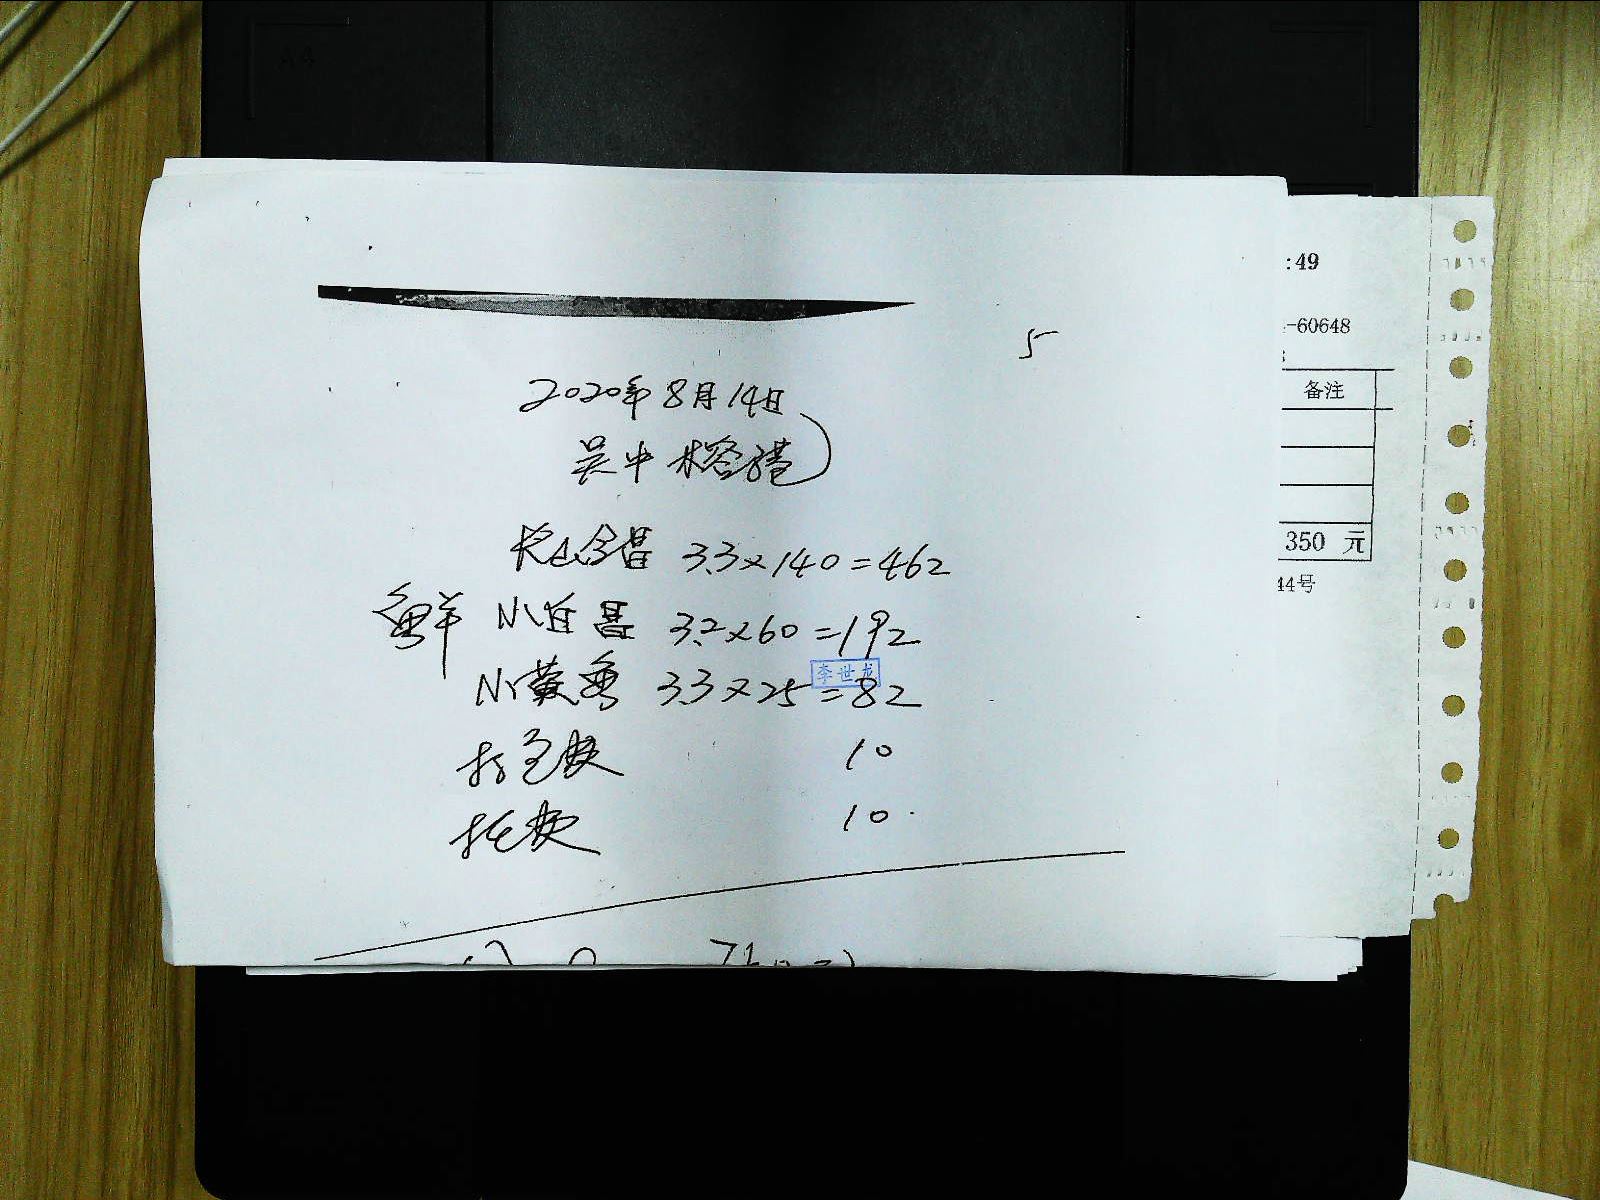 A4
:49
5
-60648
备注
2020年8月14日
吴中榕港
3.3×140=462
350 元
44号
鲜 小白昌 3.2×60=192
李世龙
小黄鱼 3.3×25=82
打包费 10
托费 10